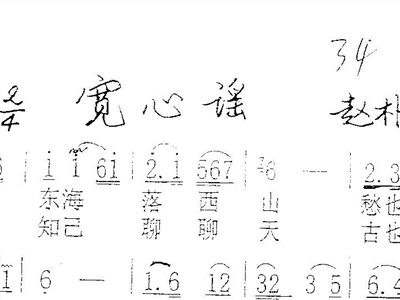 34
2/4 宽心谣 赵朴
i i 6i | 2. i 567 | 6 — | 2.3
东海 落 西 山 愁也
知己 聊 聊 天 古也
1 6 — | 1.6 12 | 32 3 5 | 6.4